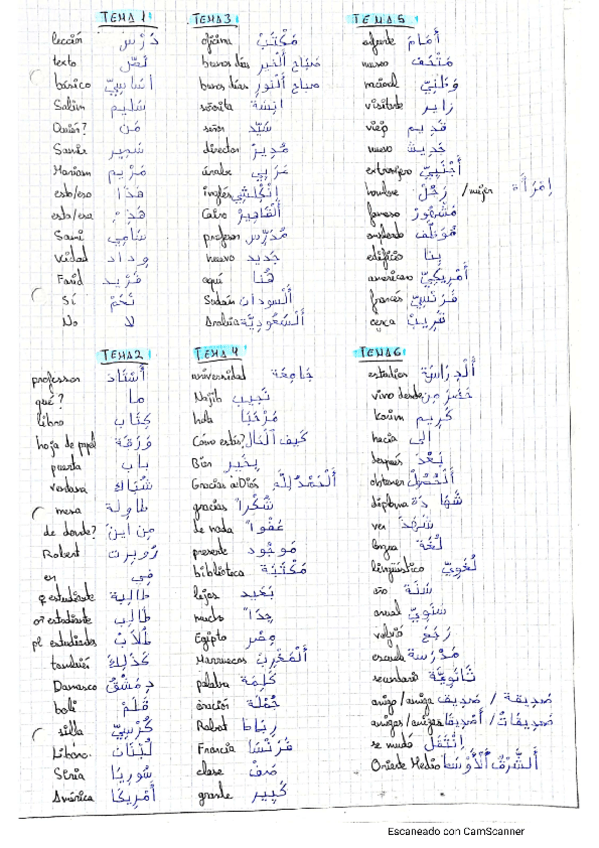 TEMA 1
lección دَرْس
texto نَصّ
básico أَسَاسِيّ
Salim سَلِيم
Quién? مَن
Samir سَمِير
Mariam مَرْيَم
esto/eso هَذَا
esta/esa هَذِهِ
Sami سَامِي
Vidad وِدَاد
Farid فَرِيد
Sí نَعَمْ
No لا
TEMA 2
professor أُسْتَاد
qué? ما
libro كِتَاب
hoja de papel وَرَقَة
puerta بَاب
ventana شُبَّاك
mesa طَاوِلَة
de donde? مِن أَيْنَ
Robert رُوبِرت
en فِي
ª estudiante طَالِبَة
oº estudiante طَالِب
pl estudiantes طُلَّاب
también كَذَلِكَ
Damasco دِمَشْقُ
boli قَلَمْ
silla كُرْسِيّ
Líbano لُبْنَان
Siria سُورِيَا
América أَمْرِيكَا
TEMA 3
oficina مَكْتَبْ
buenos días صَبَاح الْخَير
buenos días صباح النور
señorita آنِسَة
señor سَيِّد
director مُدِير
árabe عَرَبِي
inglés إِنْكْلِيِّي
Cairo ألْقَاهِرَ
profesor مُدَرِّس
nuevo جَدِيد
aquí هُنَا
Sudán ألْسودَان
Arabia ألْسَعُودِيَّة
TEMA 4
universidad جَامِعَة
Najib نَجِيب
hola مَرْحَبًا
Cómo estás? كَيف ألْحَال
Bien بِخَير
Gracias a Dios ألْحَمْدُ لِلَّه
gracias شُكْرًا
de nada عَفْوًا
presente مَوجُود
biblioteca مَكْتَبَة
lejos بَعَيد
mucho جِدًا
Egipto مِصْر
Marruecos ألْمَغْرِبَ
palabra كَلِمَة
oración جُمْلَة
Rabat رِبَاط
Francia فَرَنْسَا
clase صَفْ
grande كَبِير
TEMA 5
enfrente أَمَامَ
museo مَتْحَف
nacional وَطَنِيّ
visitante زَاير
viejo قَدِيم
nuevo حَدِيث
extranjero أَجْنَبِيّ
hombre رَجُل / mujer اِمْرَأَة
famoso مَشْهُور
empleado مُوَظَّف
edificio بِنَا
americano أَمْرِيكِيّ
francés فَرَنْسِيّ
cerca قَرِيبْ
TEMA 6
estudios ألْدِرَاسَة
vino desde حَضَرَ مِن
Karim كَرِيم
hacia إلَى
después بَعْدَ
obtener ألْحُصُلْ
diploma شَهَا دَة
ver شَهَدَ
lengua لُغَة
lingüístico لُغَوِيّ
año سَنَة
anual سَنَوِيّ
volvió رَجَعَ
escuela مَدْرَسة
secundaria ثَانَوِيَّة
amigo/amiga صَدِيق / صَدِيقَة
amigos/amigas أَصْدِيقَا / صَدِيقَاتُ
se mudó اِنْتَقَلَ
Oriente Medio ألْشَرْق ألْأَوْسَط
Escaneado con CamScanner